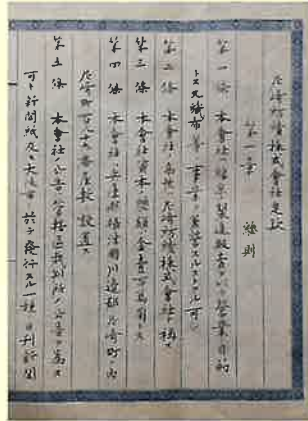 尼崎紡績株式會社定款
第一章 總則
第一條 本會社ハ綿糸製造販賣ヲ以テ營業目的
トス 織布等ノ事業ヲ兼營スルコトアル可シ
第二條 本會社ノ名號ハ尼崎紡績株式會社ト稱ス
第三條 本會社資本ノ總額金壹百萬圓トス
第四條 本會社ハ兵庫縣攝津國川邊郡尼崎町ノ内
尼崎町 番屋敷ニ設置ス
第五條 本會社ノ公告ハ管轄區裁判所ノ公告ヲ為ス
可キ新聞紙及ヒ大阪市ニ於テ發行スル一種ノ日刊新聞